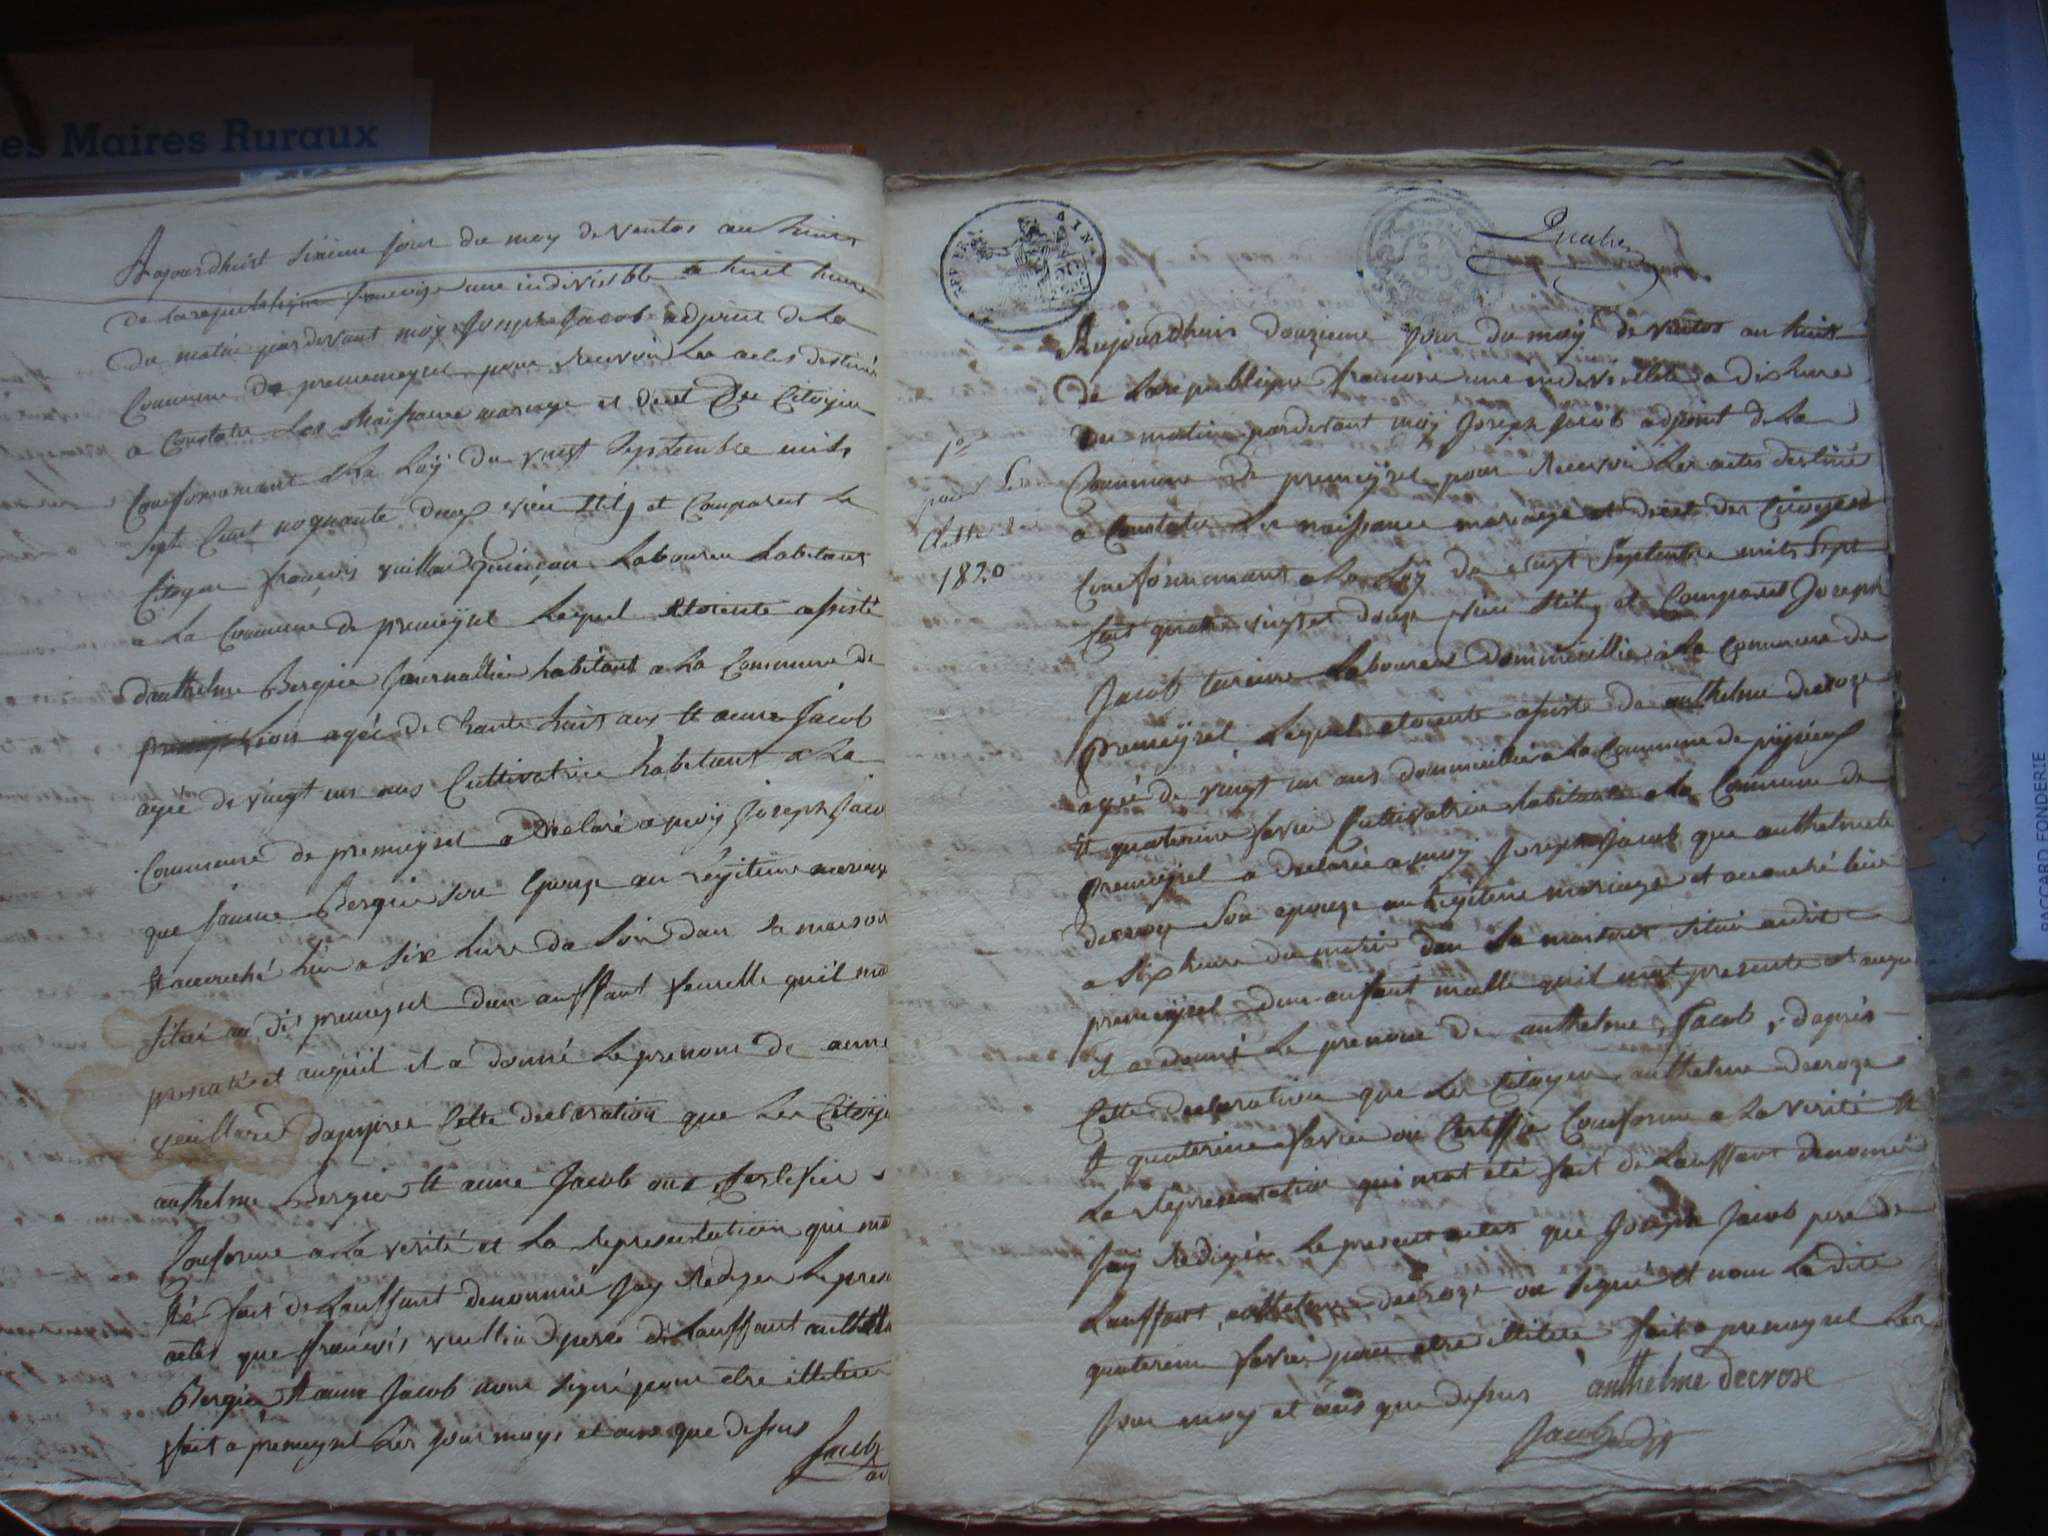 es Maires Ruraux
Aujourdhuit Sixieme Jour du moy de ventos an huit
De la republique francoize une indivisible a huit heure
Du matin pardevant moy Joseph Jacob adjoint de La
Commune De premeyzel pour recevoir Les actes destinés
a Constater Les Naissance mariage et decet Des Citoyen
Conformemant a La Loÿ du vingt Septembre mil
Sept Cent noquante deux vieu Stil, et Comparut Le
Citoyen françois vuillard quinçon Laboureu habitant
a La Commune de premeÿzel Lequel etoiente assisté
d'anthelme Bergier Journallier habitant a La Commune de
agée de trante huit ans et anne Jacob
agée de vingt un ans Cultivatrice habitant a La
Commune de premeyzel a Declaré a moÿ Joseph Jaco
que Bergier Son Epouze an Legitime mariage
et accouché hier a Six heure du Soir dans Sa maison
Situé au dit premeyzel dun anffant femelle quil ma
presanté et auquel il a donné Le prenom de anne
vuillard dapprés Cette declaration que Les Citoye
anthelme Bergier et anne Jacob ont Certifier
Conforme a La verité et La representation qui ma
été fait de Lanffant denommé Jay redigez Le prese
actes que françois vuillard pere de Lanffant anthelm
Bergier et anne Jacob nont signé pour etre illiterer
fait a premeyzel Les Jour moys et ans que dessus
Jacob
Quatre
APP
AIN
Aujourdhuis douzieme Jour du moÿ de ventos an huit
De La republique francoize une indivisible a dix heure
Du matin pardevant moÿ Joseph Jacob adjoint de La
1er
Commune de premeÿzel pour recevoir Les actes destiné
pour
a Constater Les naissance mariage et decet des Citoyens
Classe
Conformemant a La Loÿ du vingt Septembre mil Sept
1820
Cent quatre vingt et douze vieu Stil, et Comparut Joseph
Jacob Laboureur dommicillié a La Commune de
premeÿzel Lequel etoiente assisté de anthelme decroze
agée de vingt un ans dommicillié a La Commune de pÿzieux
et quaterine favier Cultivatrice habitante a La Commune de
premeÿzel a declarée a moÿ Joseph Jacob que anthelmete
decroze Son epouze an Legitime mariage et accouché hier
a Six heure du matin dans Sa maison Situé audit
premeÿzel dun anfant malle quil mat presente et auque
il a donné Le prenom de anthelme Jacob, daprés
Cette declaration que Les Citoyen anthelme decroze
et quaterine favier on Certiffié Conforme a La verité et
La representation qui mat eté fait de Lanffant denommé
Jay redigée Le present actes que Joseph Jacob pere de
Lanffant anthelme decroze on signé et non La dite
quaterine favier pour etre illitere fait a premeyzel Les
Jour moy et ans que dessus
anthelme decroze
Jacob adjt
PACCARD FONDERIE